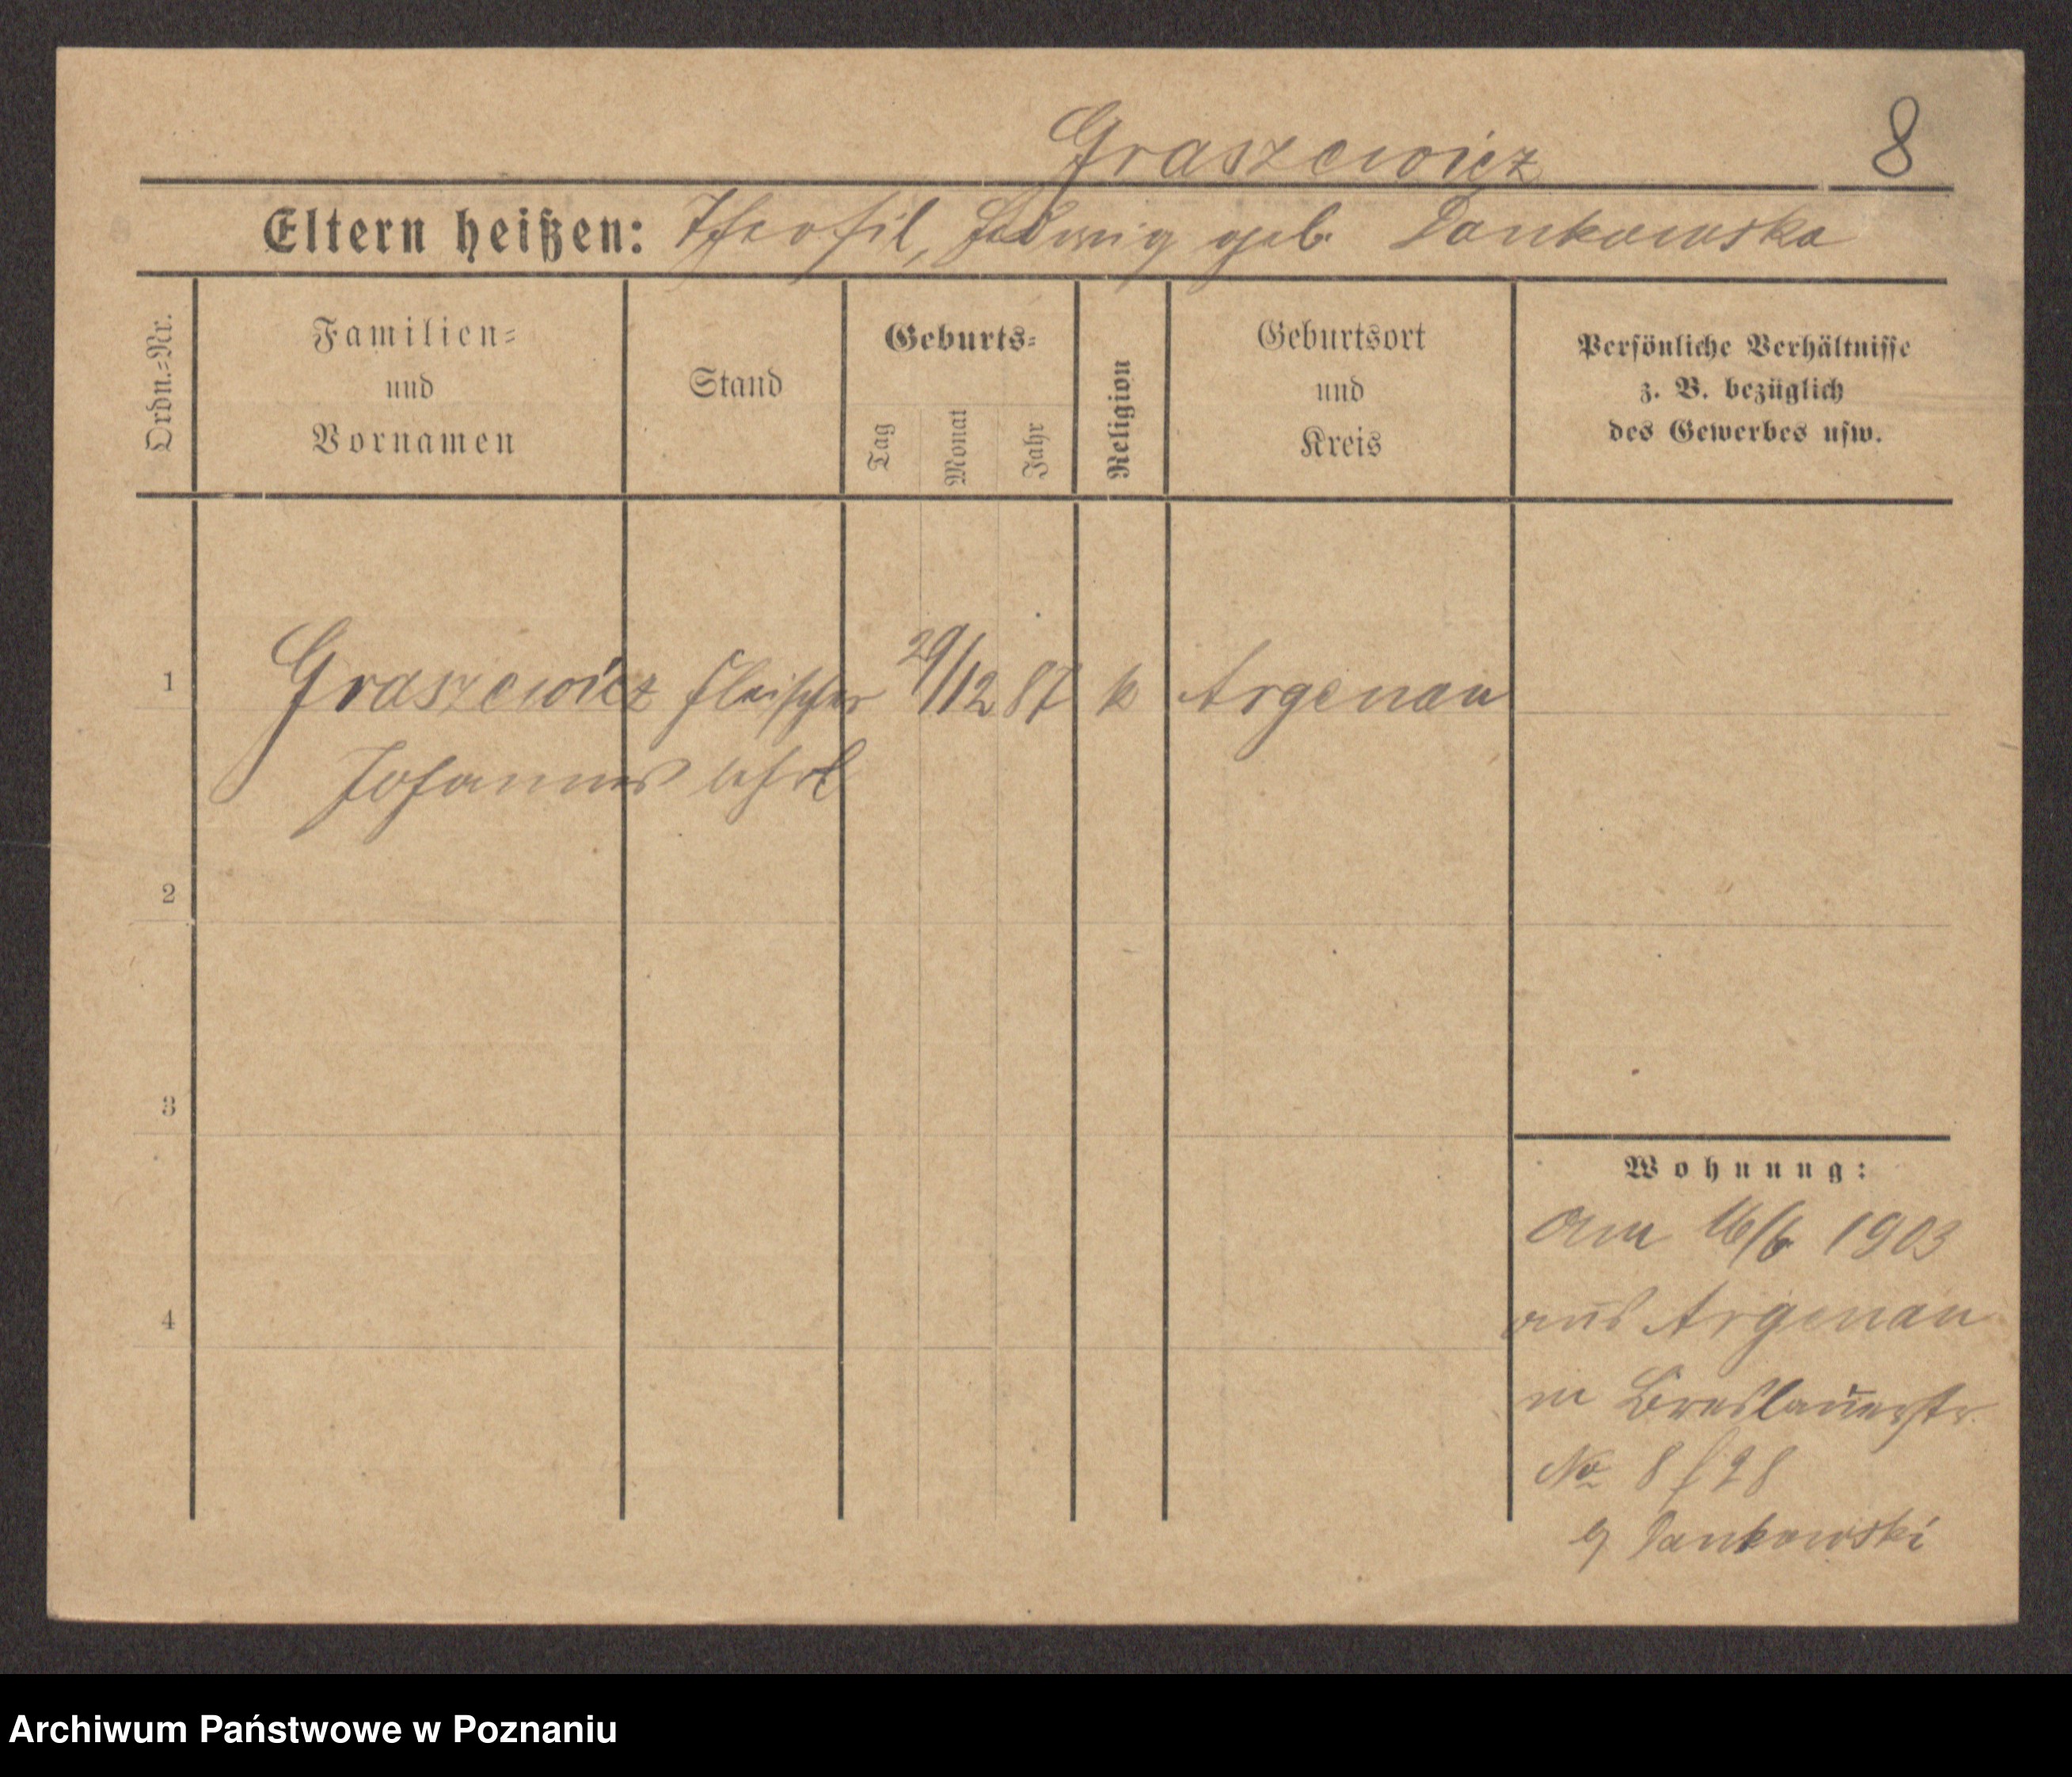 Graszewicz
8
Eltern heißen: Theofil, Hedwig geb. Dankowska
Ordn.=Nr.
Familien=
und
Vornamen
Stand
Geburts=
Tag
Monat
Jahr
Religion
Geburtsort
und
Kreis
Persönliche Verhältnisse
z. B. bezüglich
des Gewerbes usw.
1 Graszewicz Fleischer 29/12 87 k Argenau
Johannes
2
3
4
Wohnung:
Am 16/6 1903
aus Argenau
in Breslauerstr.
No 8
Dankowski
Archiwum Państwowe w Poznaniu